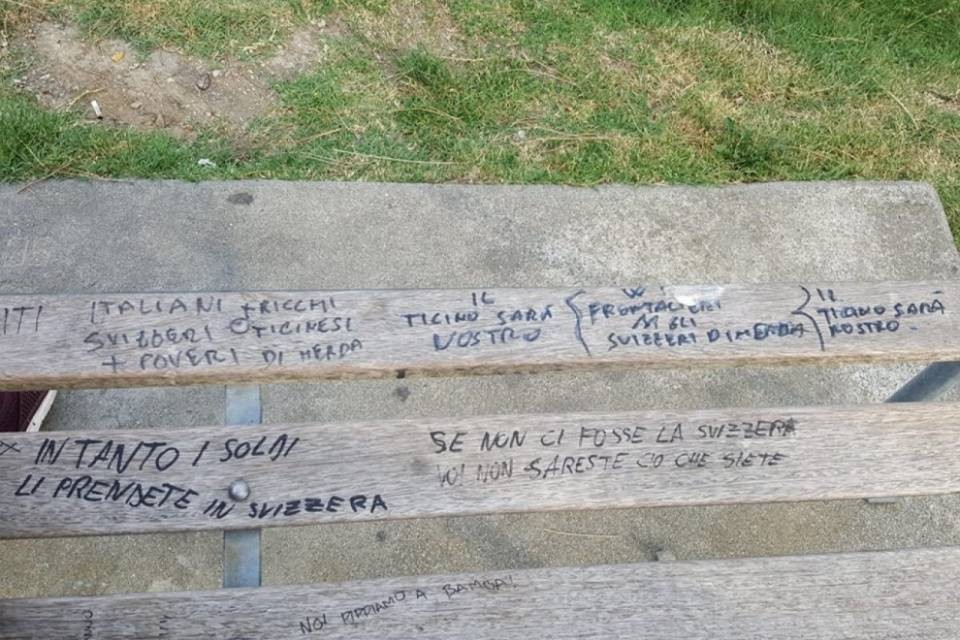 ITALIANI + RICCHI
SVIZZERI O TICINESI
+ POVERI DI MERDA
IL
TICINO SARÁ
NOSTRO
W I
FRONTALIERI
M GLI
SVIZZERI DI MERDA
IL
TICINO SARÁ
NOSTRO
IN TANTO I SOLDI
LI PRENDETE IN SVIZZERA
SE NON CI FOSSE LA SVIZZERA
VOI NON SARESTE CIO CHE SIETE
NOI PIPPIAMO A BAMBA!